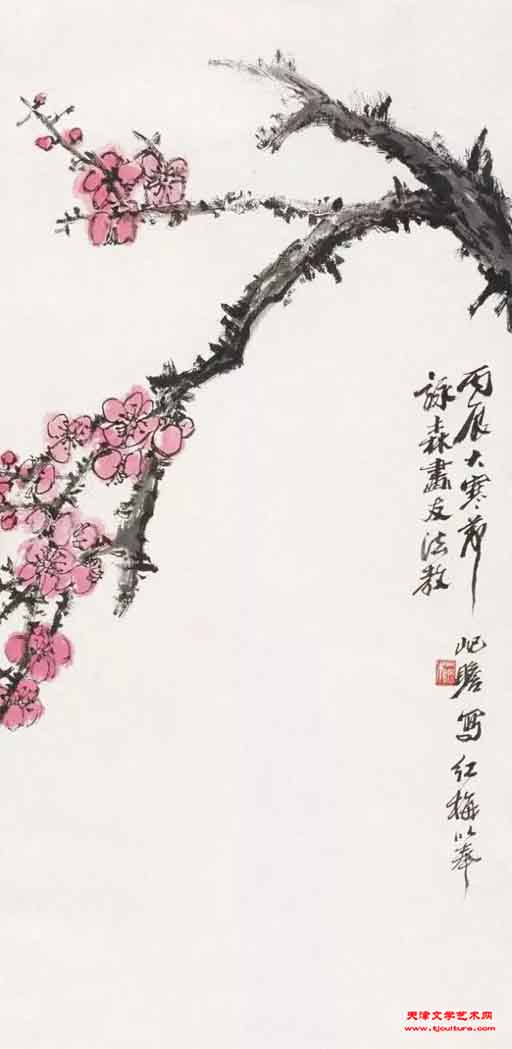 丙辰大寒節屺瞻寫紅梅以奉
詠森畫友法教
天津文学艺术网
www.tjculture.com